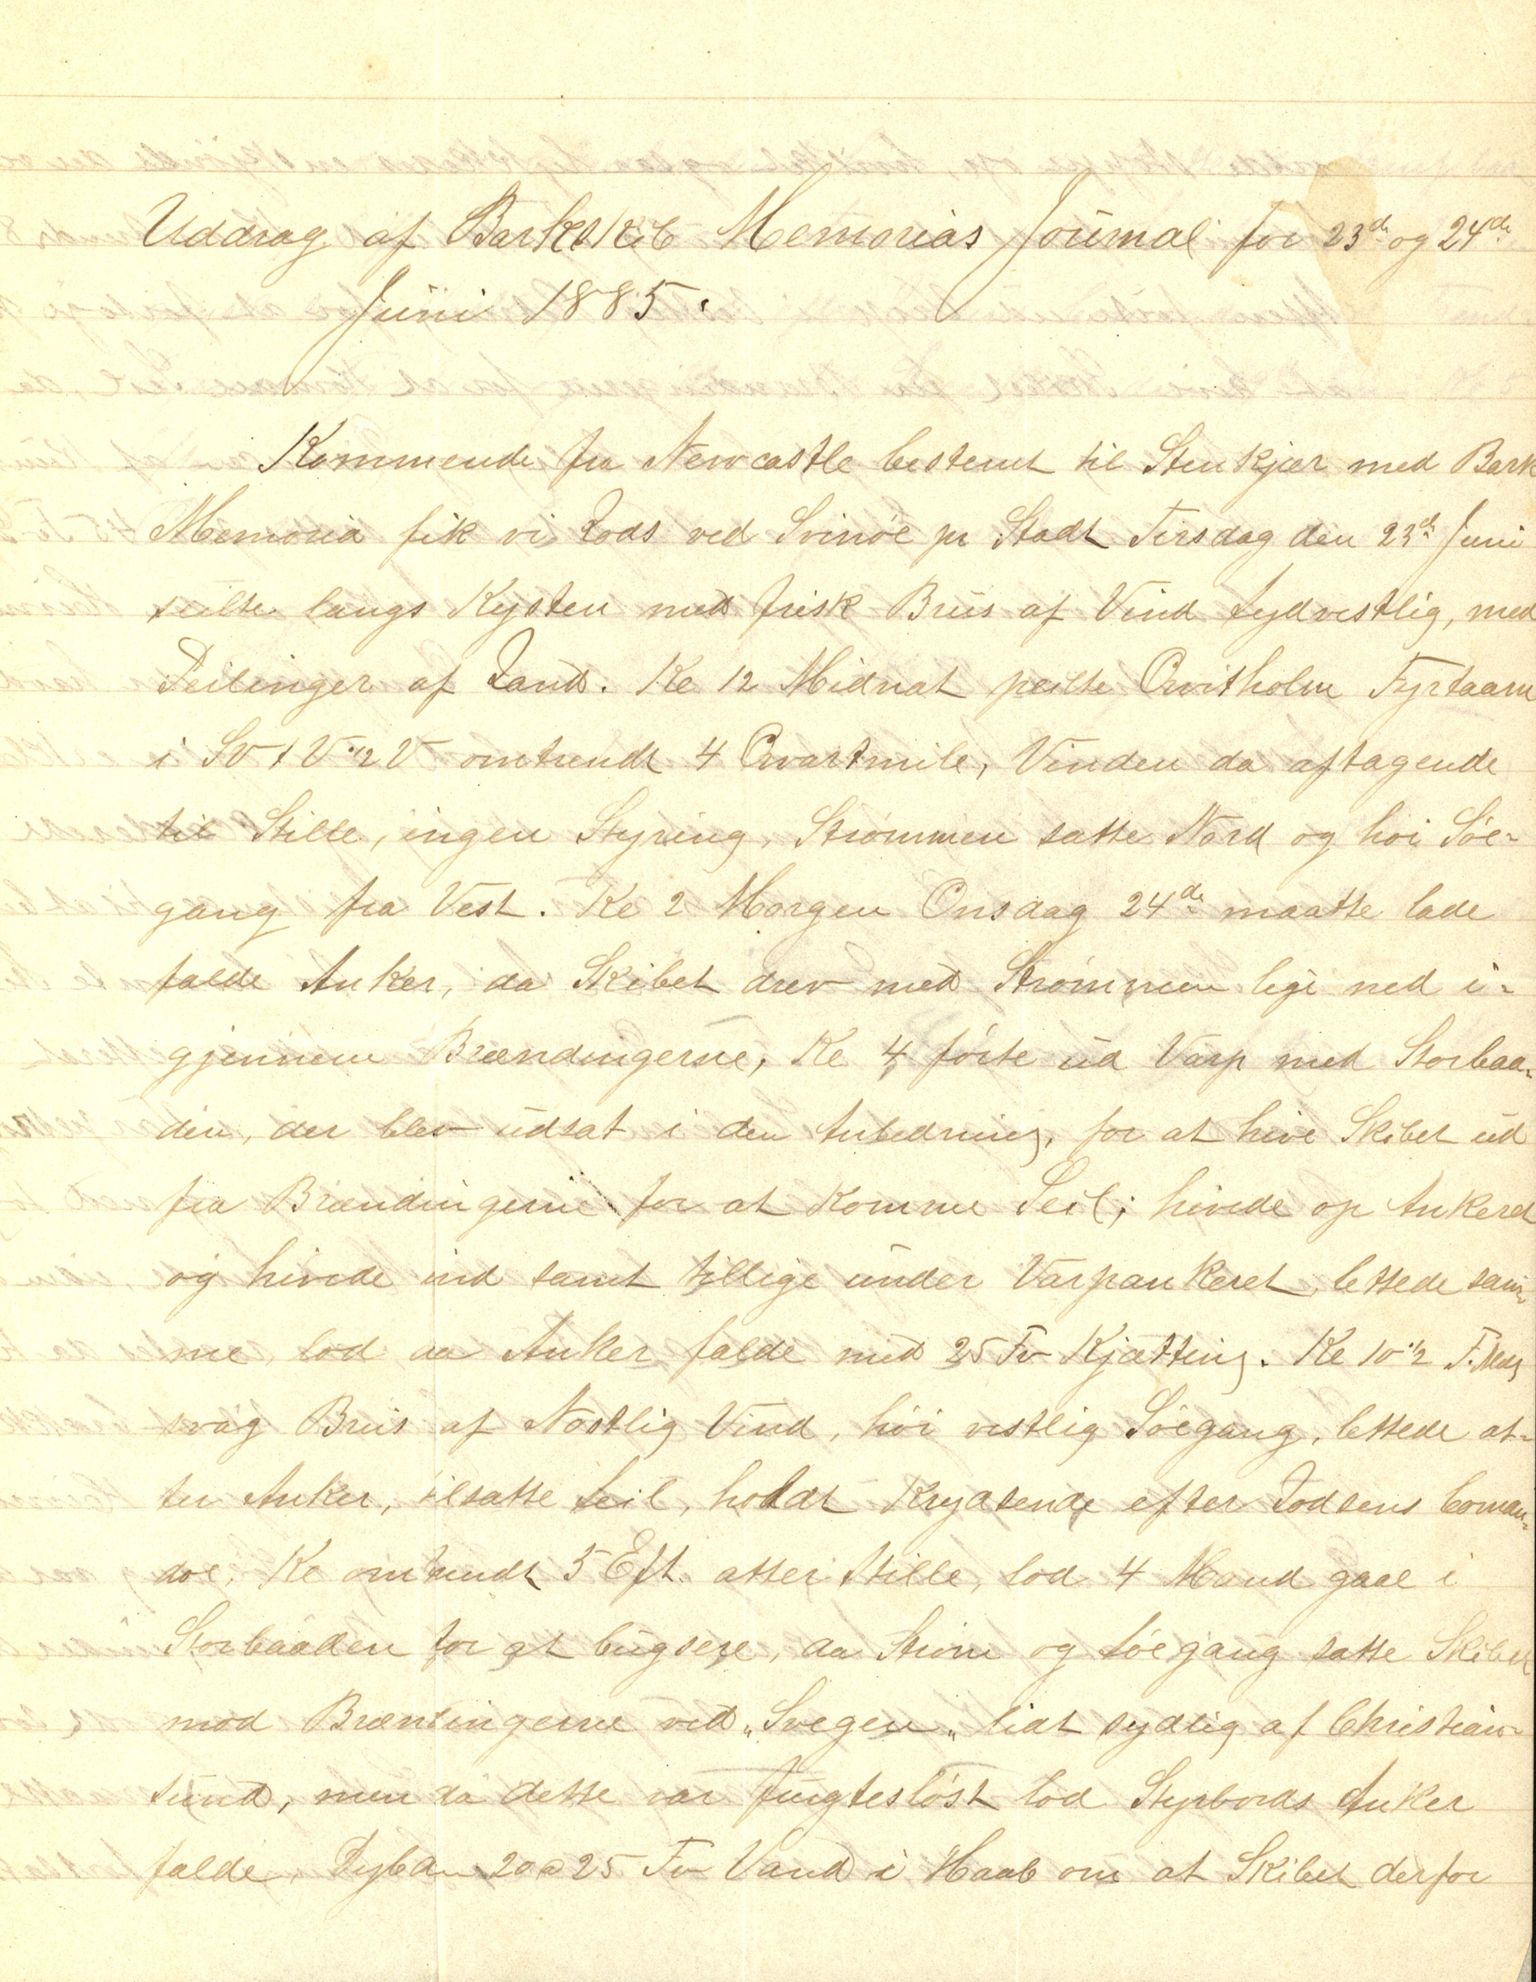 Uddrag af Barkskib Memorias Journal for 23de og 24de
Juni 1885.
Kommende fra Newcastle bestemt til Stenkjær med Bark
Memoria fik vi Lods ved Svinöe pr Stadt Tirsdag den 23de Juni
seilte langs Kysten med frisk Bris af Vind sydvestlig, med
Peilinger af Land. Kl 12 Midnat peilte Qvitholm Fyrtaarn
i SV t V 1/2 V omtrendt 4 Qvartmile, Vinden da aftagende
til Stille, ingen Styring, Strømmen satte Nord og høi Söe-
gang fra Vest. Kl 2 Morgen Onsdag 24de maatte lade
falde Anker, da Skibet drev med Strømmen lige ned i-
gjennem Brændingerne, Kl 4 førte ud Varp med Storbaa-
den, der blev udsat i den Anledning, for at hive Skibet ud
fra Brændingerne for at komme Seil; hivede op Ankeret
og hivede ind samt tillige under Varpankeret, lettede sam-
me lod da Anker falde med 25 Fv Kjætting. Kl 10 1/2 F.Mdg
svag Bris af Nostlig Vind, höi vestlig Söegang, lettede at-
ter Anker, tilsatte Seil, holdt Krydsende efter Lodsens Coman-
doe. Kl omtrendt 5 Eft. atter Stille, lod 4 Mand gaae i
Storbaaden for at bugsere, da Strøm og Söegang satte Skibet
mod Brændingerne ved „Svegen„ lidt sydlig af Christian-
sund, men da dette var frugtesløst lod Styrbords Anker
falde, Dybde 20 a 25 Fv Vand i Haab om at Skibet derfor